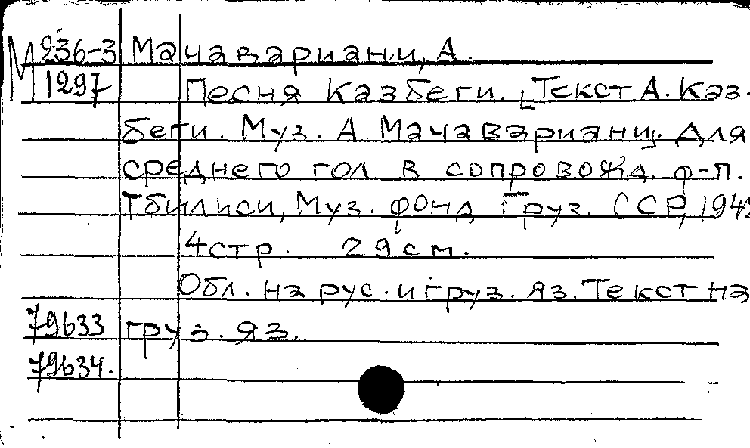 М 236-3 Мачавариани, А.
1297 Песня Казбеги. [Текст А. Каз-
беги. Муз. А Мачавариани]. Для
среднего гол в сопровожд. ф-п.
Тбилиси, Муз. фонд Груз. ССР, 194
4 стр. 29 см.
Обл. на рус. и груз. яз. Текст на
79633 груз. яз.
79634.